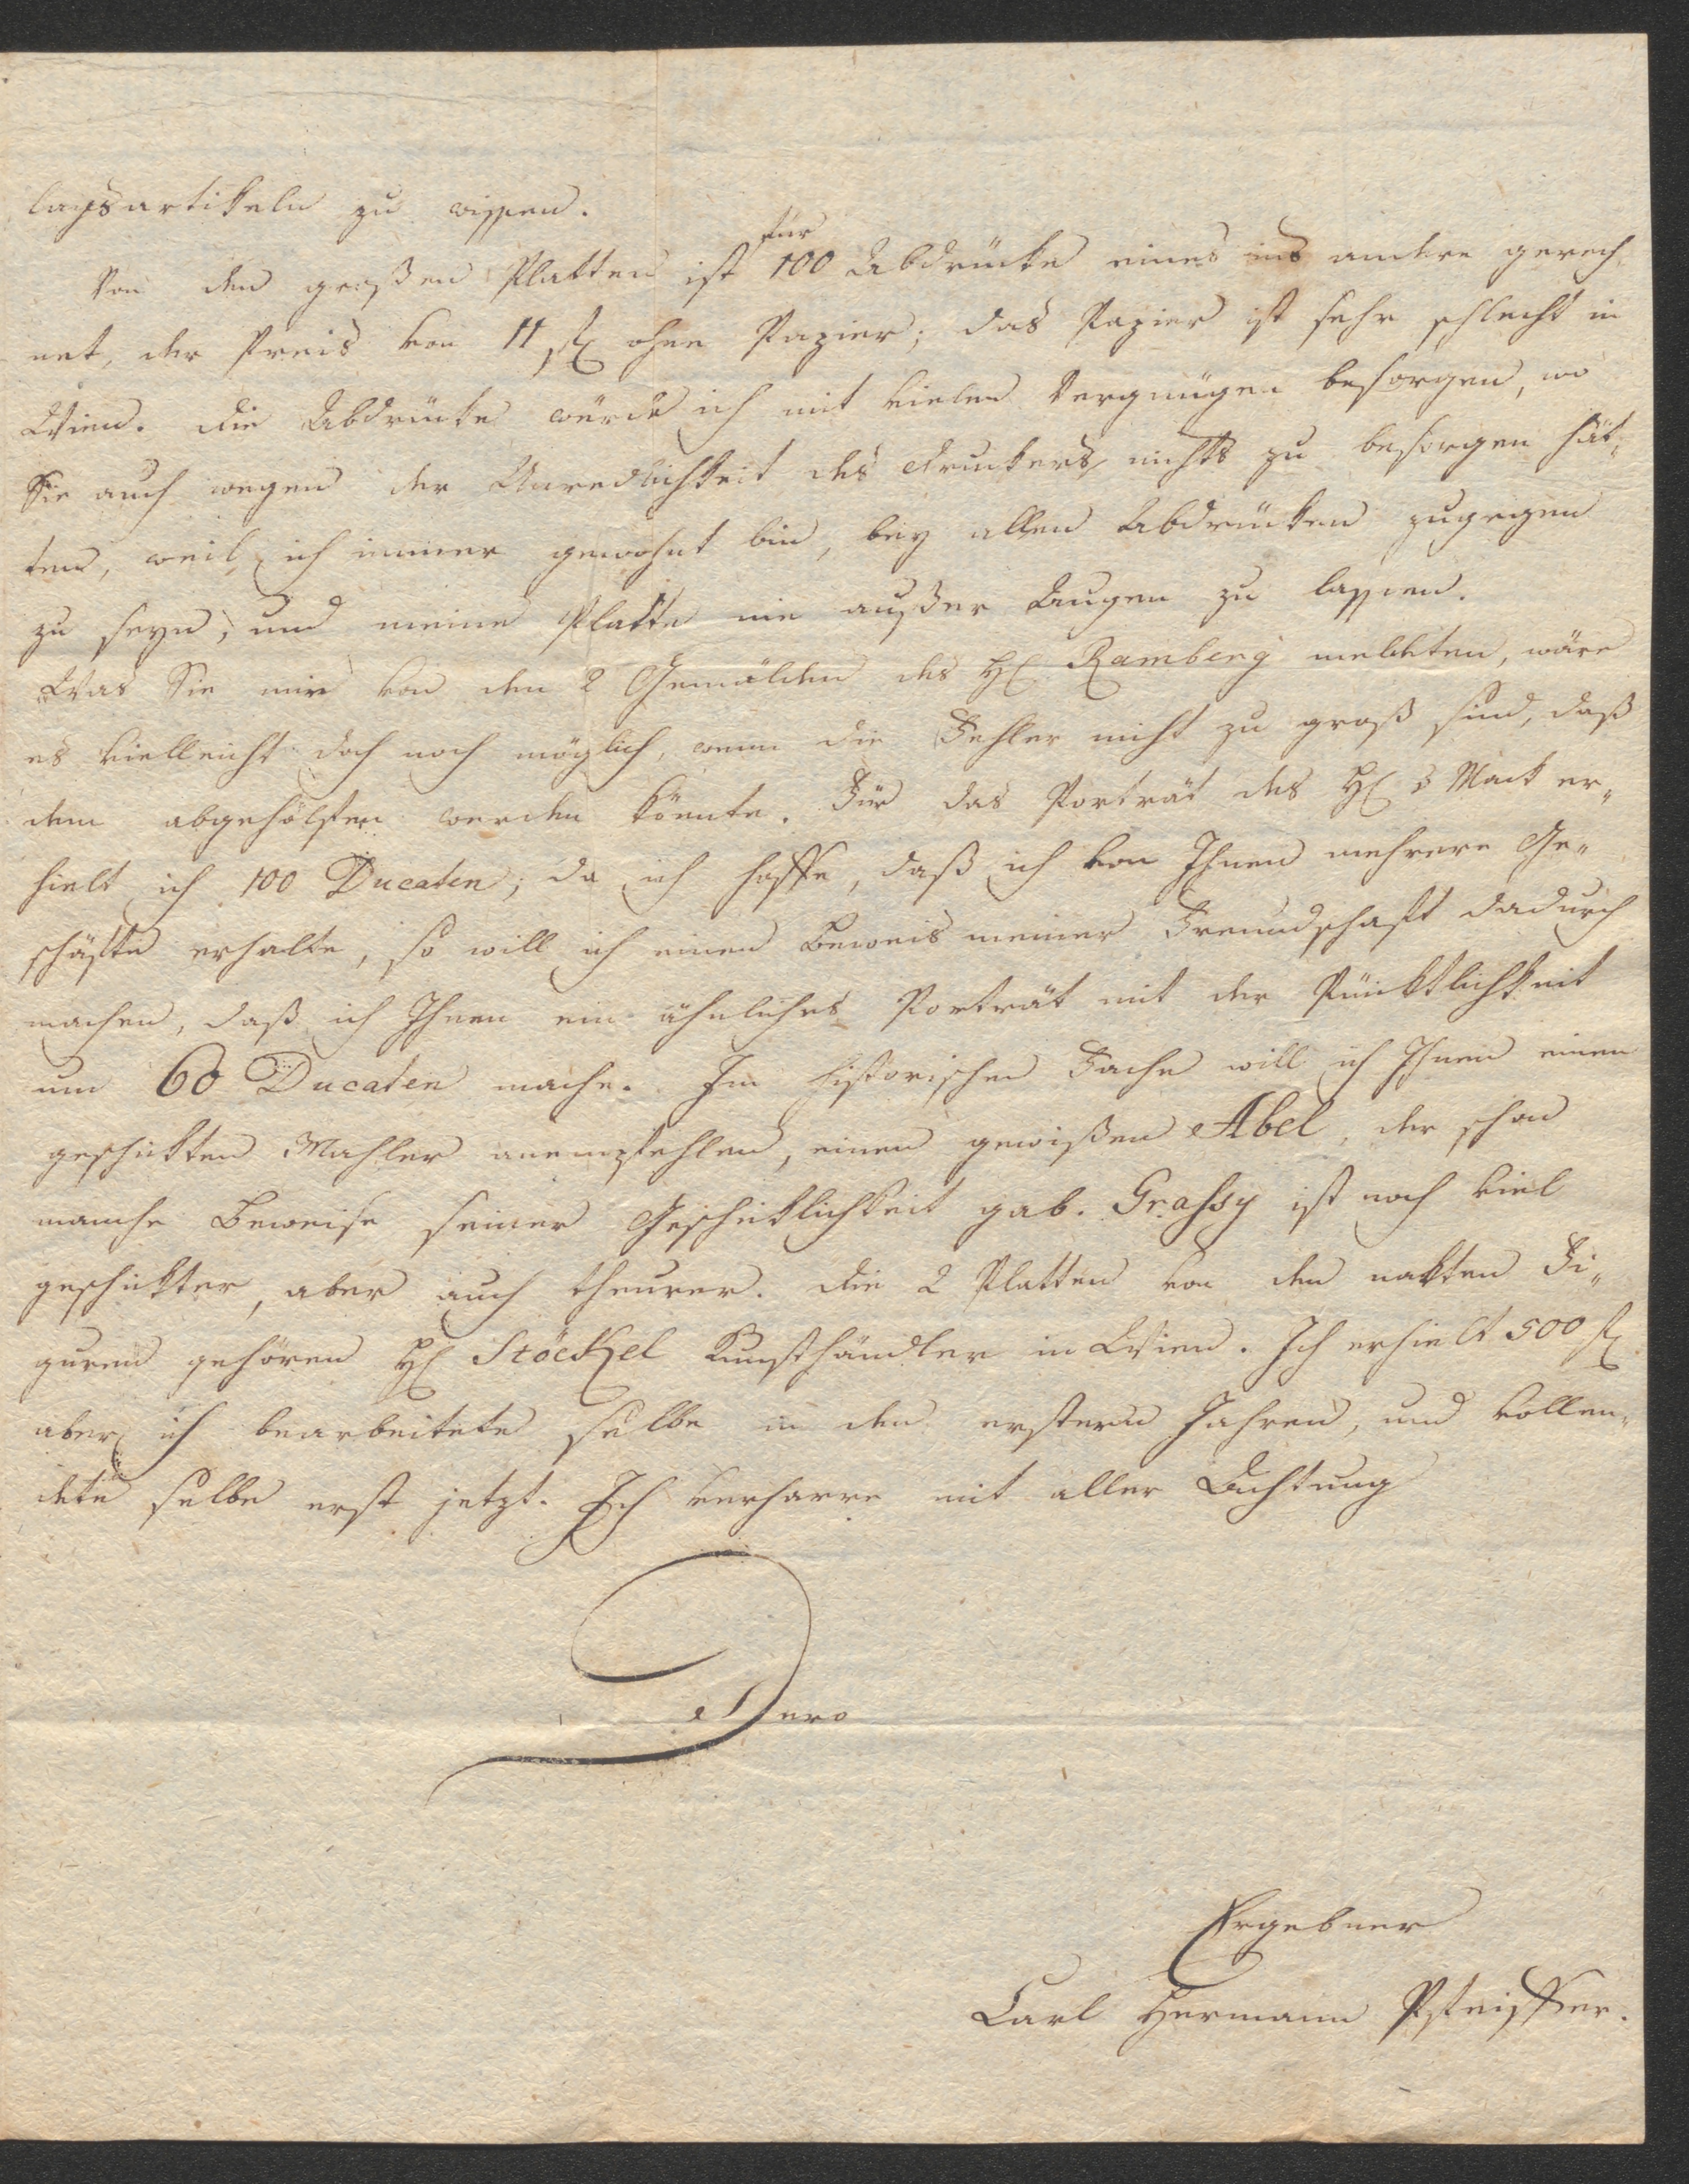 lagsartikeln zu wissen.
für
Von den großen Platten ist 100 Abdrücke eines ins andere gerech
net, der Preis von 11 fl ohne Papier; das Papier ist sehr schlecht in
Wien. Die Abdrücke würde ich mit vielen Vergnügen besorgen, wo
Sie auch wegen der Unredlichkeit des Druckers nichts zu besorgen hät,,
ten, weil ich immer gewohnt bin, bey allen Abdrücken zugegen
zu seyn, und meine Platte nie außer Augen zu lassen.
Was Sie mir von den 2 Gemälden des H Ramberg meldeten, wäre
es vielleicht doch noch möglich, wenn die Fehler nicht zu groß sind, daß
dem abgeholfen werden könnte. Für das Porträt des H v Mack er,,
hielt ich 100 Ducaten; da ich hoffe, daß ich von Ihnen mehrere Ge,,
schäfte erhalte, so will ich einen Beweis meiner Freundschaft dadurch
machen, daß ich Ihnen ein ähnliches Porträt mit der Pünktlichkeit
um 60 Ducaten mache. Im historischen Fache will ich Ihnen einen
geschickten Mahler anempfehlen, einen gewißen Abel, der schon
manche Beweise seiner Geschicklichkeit gab. Grassy ist noch viel
geschickter, aber auch theurer. Die 2 Platten von den nakten Fi,,
guren gehören H Stöckel Kunsthändler in Wien. Ich erhielt 500 fl
aber ich bearbeitete selbe in den erstern Jahren, und vollen,,
dete selbe erst jetzt. Ich verharre mit aller Achtung
Dero
Ergebner
Carl Hermann Pfeiffer.